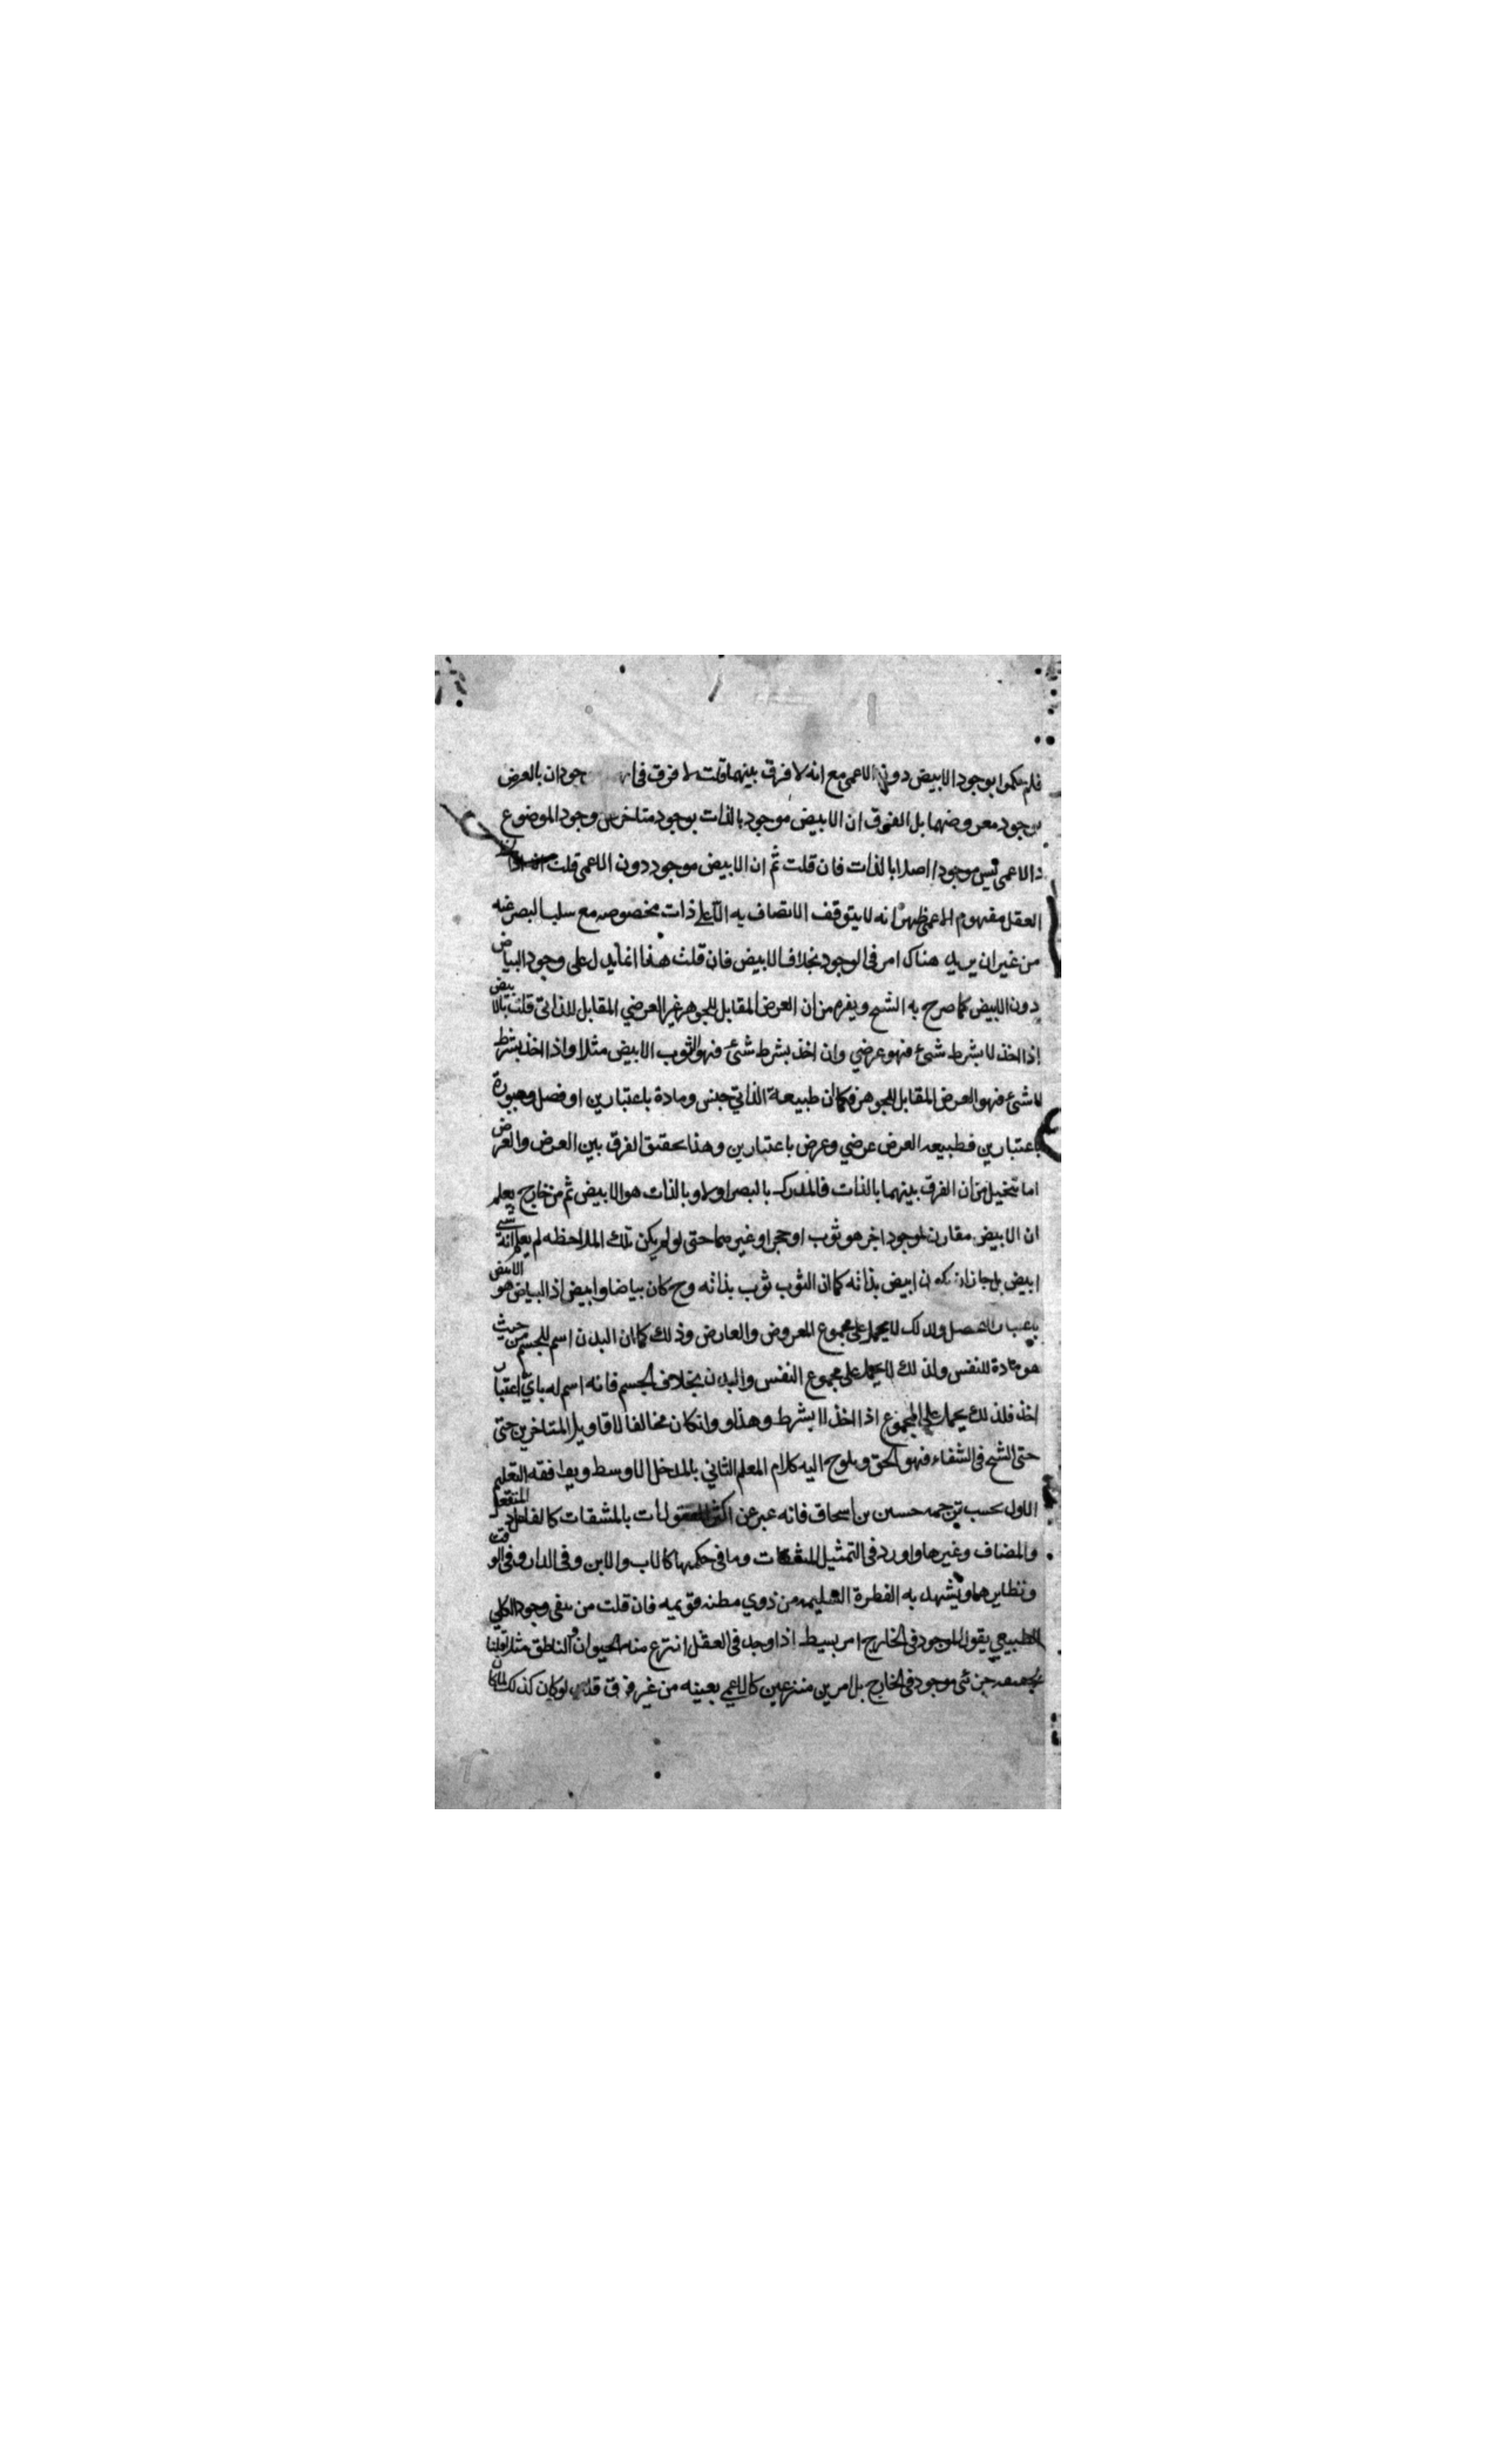 فلم حكموا بوجود الابيض دون الاعمى مع انه لا فرق بينهما قلت لا فرق في جودان بالعرض
بوجود معروضهما بل الفرق ان الابيض موجود بالذات بوجود متاخر عن وجود الموضوع
والاعمى ليس موجودا اصلا بالذات فان قلت ثم ان الابيض موجود دون الاعمى قلت
العقل مفهوم الاعمى ظهر انه لا يتوقف الاتصاف به الا على ذات مخصوصه مع سلب البصر عنه
من غير ان هناك امر في الوجود بخلاف الابيض فان قلت هذا انما يدل على وجود البياض
دون الابيض كما صرح به الشيخ وغيره من ان العرض المقابل للجوهر غير العرضي المقابل للذاتي قلت الابيض
اذا اخذ لا بشرط شئ فهو عرضي وان اخذ بشرط شئ فهو الثوب الابيض مثلا واذا اخذ بشرط
لا شئ فهو العرض المقابل للجوهر فكما ان طبيعة الذاتي جنس ومادة باعتبارين او فصل وصورة
باعتبارين فطبيعه العرض عرضي وعرض باعتبارين وهذا تحقيق الفرق بين العرض والعرض
اما تتخيل من ان الفرق بينهما بالذات فالمدرك بالبصر اولا وبالذات هو الابيض ثم من خارج يعلم
ان الابيض مقارن لموجود اخر هو ثوب او حجر او غيرهما حتى لو لم يكن تلك الملاحظه لم يعلم انه شئ
ابيض بل جاز ان يكون ابيض بذاته كما ان الثوب ثوب بذاته وح كان بياضا وابيض اذ البياض هو الابيض
باعتبار التحصل ولذلك لا يحمل على مجموع المعروض والعارض وذلك كما ان البدن اسم للجسم من حيث
هو مادة للنفس ولذلك لا يحمل على مجموع النفس والبدن بخلاف الجسم فانه اسم له باي اعتبار
اخذ فلذلك يحمل على المجموع اذا اخذ لا بشرط وهذا وان كان مخالفا لاقاويل المتاخرين حتى
حتى الشيخ في الشفاء فهو الحق ويلوح اليه كلام المعلم الثاني بالمدخل الاوسط ويوافقه التعليم
الاول بحسب ترجمه حسين بن اسحاق فانه عبر عن اكثر المقولات بالمشتقات كالفاعل والمنفعل
والمضاف وغيرها واورد في التمثيل المشتقات وما في حكمها كالاب والابن وفي الدار وفي الوقت
ونظايرهما ويشهد به الفطرة السليمه من ذوي فان قلت من نفى وجود الكلي
الطبيعي يقول الموجود في الخارج امر بسيط اذا وجد في العقل انتزع منه الحيوان والناطق مثلا
جزئي موجود في الخارج بل امرين منتزعين كالاعمى بعينه من غير فرق قلت لو كان كذلك لكان